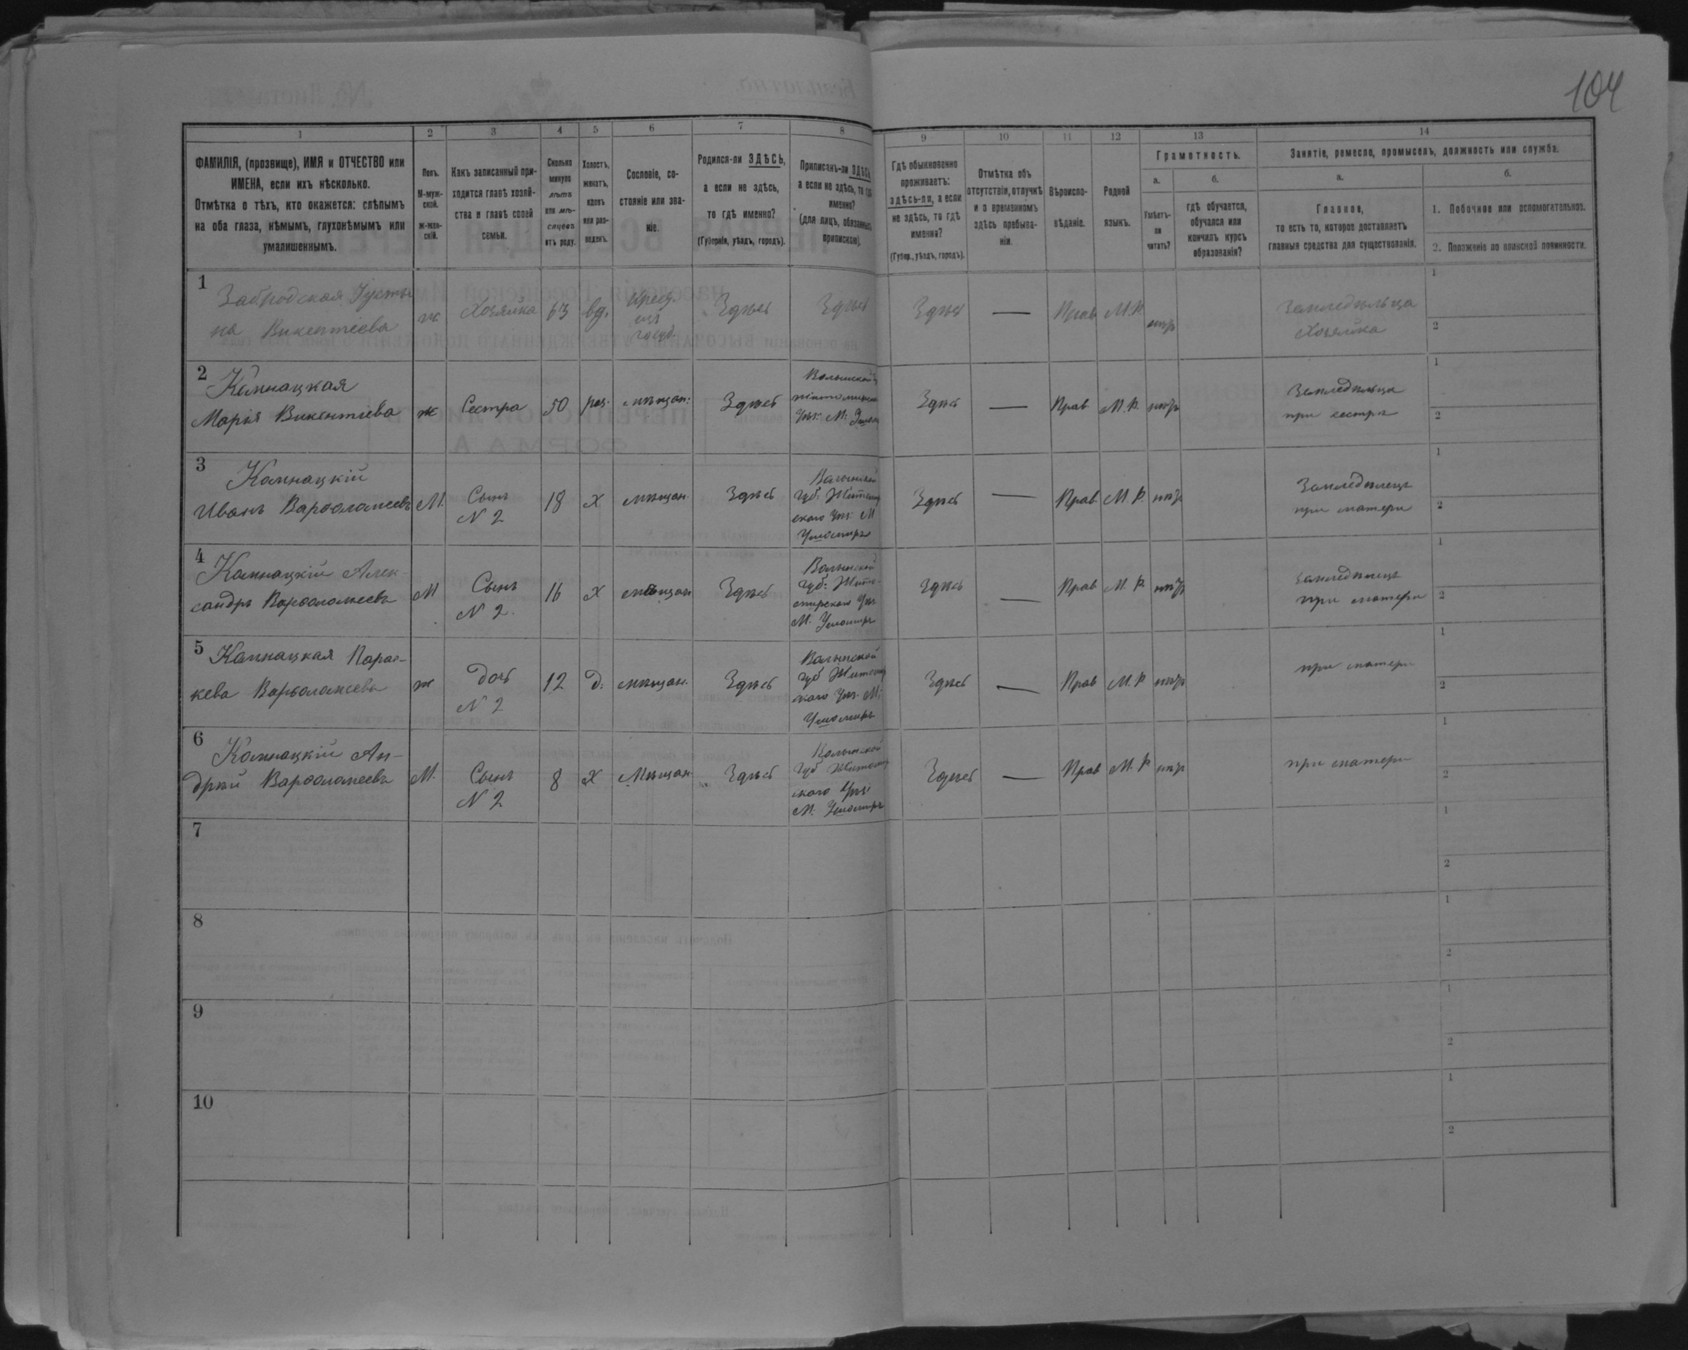 104
1
2
3
4
5
6
7
8
9
10
11
12
13
14
ФАМИЛІЯ, (прозвище), ИМЯ и ОТЧЕСТВО или
ИМЕНА, если ихъ нѣсколько.
Отмѣтка о тѣхъ, кто окажется: слѣпымъ
на оба глаза, нѣмымъ, глухонѣмымъ или
умалишеннымъ.
Полъ.
М-муж-
ской.
Ж-жен-
скій.
Какъ записанный при-
ходится главѣ хозяй-
ства и главѣ своей
семьи.
Сколько
минуло
лѣтъ
или мѣ-
сяцевъ
отъ роду.
Холостъ,
женатъ,
вдовъ
или раз-
веденъ.
Сословіе, со-
стояніе или зва-
ніе.
Родился-ли ЗДѢСЬ,
а если не здѣсь,
то гдѣ именно?
(Губернія, уѣздъ, городъ).
Приписанъ-ли ЗДѢСЬ,
а если не здѣсь, то гдѣ
именно?
(для лицъ, обязанныхъ
припискою).
Гдѣ обыкновенно
проживаетъ:
здѣсь-ли, а если
не здѣсь, то гдѣ
именно?
(Губер., уѣздъ, городъ).
Отмѣтка объ
отсутствіи, отлучкѣ
и о временномъ
здѣсь пребыва-
ніи.
Вѣроиспо-
вѣданіе.
Родной
языкъ.
Грамотность.
а.
Умѣетъ-
ли
читать?
б.
гдѣ обучается,
обучался или
кончилъ курсъ
образованія?
Занятіе, ремесло, промыселъ, должность или служба.
а.
Главное,
то есть то, которое доставляетъ
главныя средства для существованія.
б.
1. Побочное или вспомогательное.
2. Положеніе по воинской повинности.
1
Забродская Густы-
на Викентіева
ж
Хозяйка
63
вд.
Крест.
изъ
госуд.
Здѣсь
Здѣсь
Здѣсь
—
Прав
М.Р.
нтъ
Земледѣльца
Хозяйка
1
2
2
Камнацкая
Марія Викентіева
ж
Сестра
50
мѣщан.
Здѣсь
Волынской
Здѣсь
—
Прав
М.Р.
Земледѣльца
при сестрѣ
1
2
3
Камнацкій
Иванъ Варфоломеевъ
М.
Сынъ
N 2
18
Х
мѣщан
Здѣсь
Волынской
губ. Житомир
скаго Уѣз. М
Ушомиръ
Здѣсь
—
Прав
М.Р.
Земледѣлецъ
при матери
1
2
4
Камнацкій Алек-
сандръ Варфоломеевъ
М
Сынъ
N 2.
16
Х
мѣщан
Здѣсь
Волынской
губ. Жито-
мирскаго Уѣз
М. Ушомиръ
Здѣсь
—
Прав
М.Р.
Земледѣлецъ
при матери
1
2
5
Камнацкая Парас-
кева Варфоломеева
ж
дочь
N 2
12
д.
мѣщан.
Здѣсь
Волынской
губ Житомир
скаго Уѣз. М.
Ушомиръ
Здѣсь
—
Прав
М.Р.
при матери
1
2
6
Камнацкій Ан-
дрей Варфоломеевъ
М.
Сынъ
N 2
8
Х
Мѣщан
Здѣсь
Волынской
губ Житомир
скаго Уѣз
М. Ушомиръ
Здѣсь
—
Прав
М.Р.
при матери
1
2
7
1
2
8
1
2
9
1
2
10
1
2